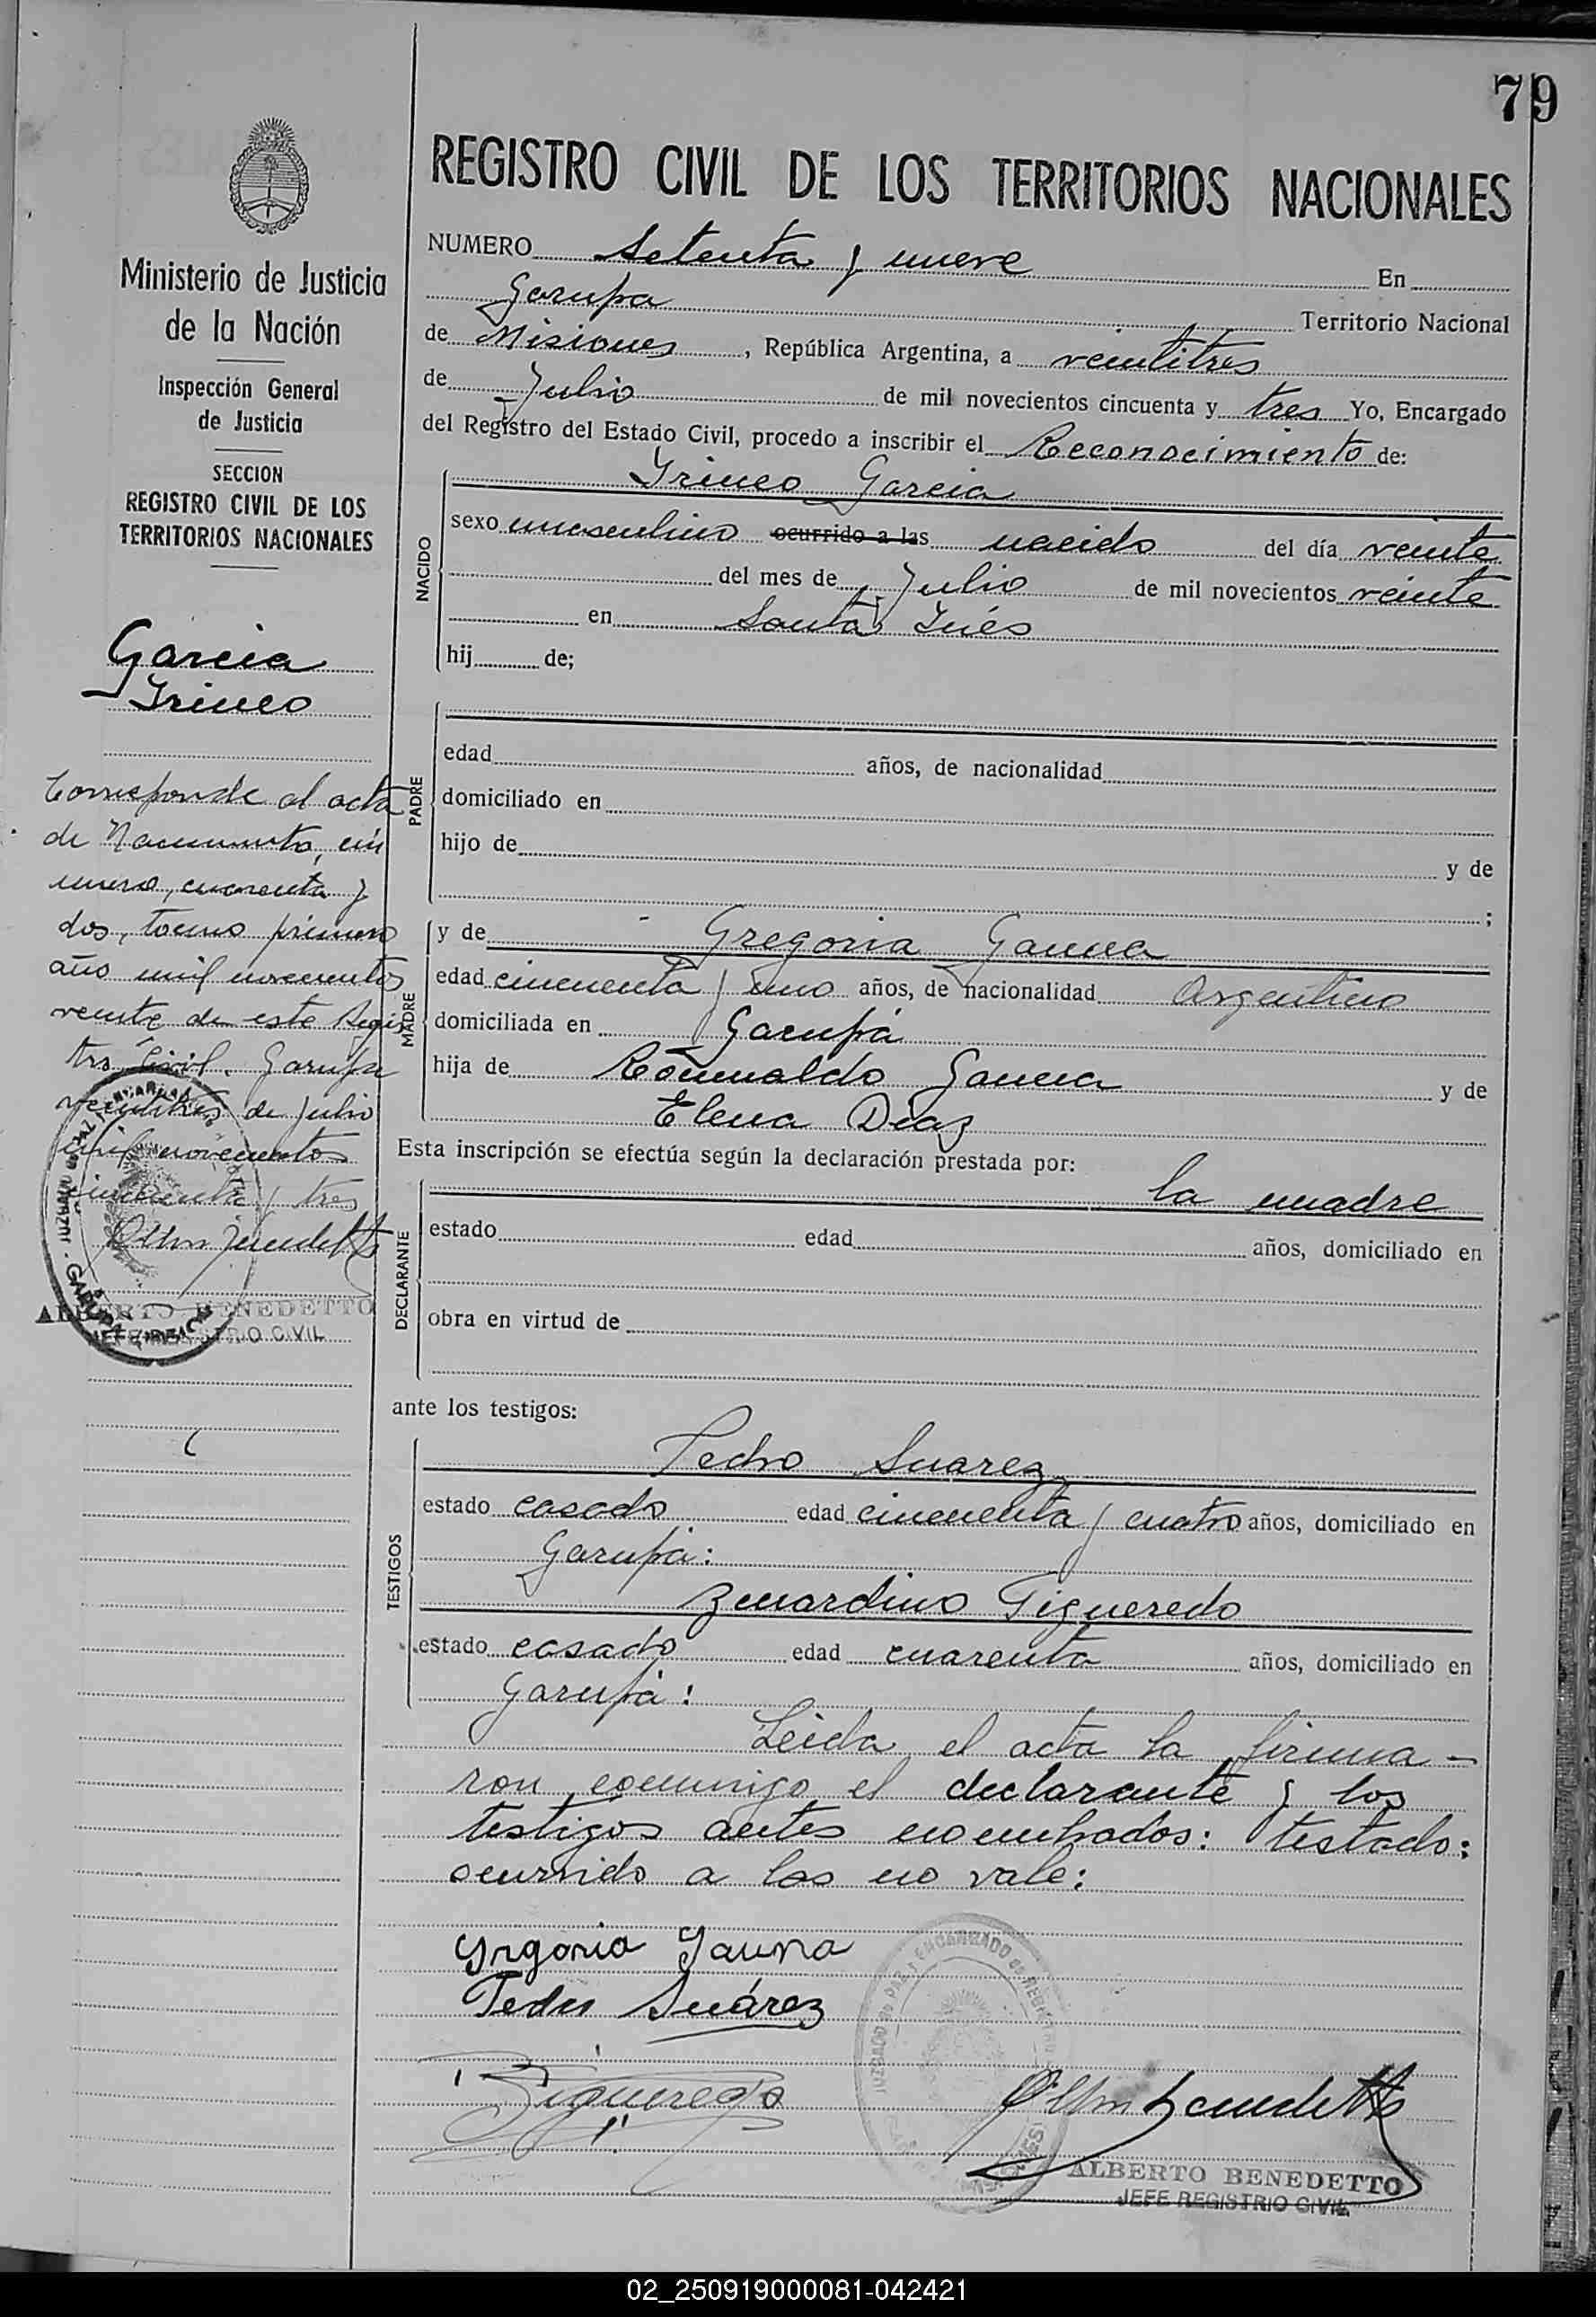 79
REGISTRO CIVIL DE LOS TERRITORIOS NACIONALES
Ministerio de Justicia
de la Nación
Inspección General
de Justicia
SECCION
REGISTRO CIVIL DE LOS
TERRITORIOS NACIONALES
Garcia
Irineo
Corresponde al acta
de Nacimiento, nú
mero, cuarenta y
dos, tomo primero
año mil novecientos
veinte de este Regis
tro Civil. Garupa
veintitres de julio
mil novecientos
cincuenta y tres
ALBERTO BENEDETTO
JEFE REGISTRO CIVIL
NUMERO Setenta y nueve En
Garupa Territorio Nacional
de Misiones, República Argentina, a veintitres
de Julio de mil novecientos cincuenta y tres Yo, Encargado
del Registro del Estado Civil, procedo a inscribir el Reconocimiento de:
NACIDO
Irineo Garcia
sexo masculino ocurrido a las nacido del día veinte
del mes de Julio de mil novecientos veinte
en Santa Inés
hij de;
PADRE
edad años, de nacionalidad
domiciliado en
hijo de y de
;
MADRE
y de Gregoria Gauna
edad cincuenta y uno años, de nacionalidad Argentino
domiciliada en Garupá
hija de Romualdo Gauna y de
Elena Diaz
Esta inscripción se efectúa según la declaración prestada por:
DECLARANTE
la madre
estado edad años, domiciliado en
obra en virtud de
ante los testigos:
TESTIGOS
Pedro Suarez
estado casado edad cincuenta y cuatro años, domiciliado en
Garupá:
Zenardino Figueredo
estado casado edad cuarenta años, domiciliado en
Garupá:
Leida el acta la firma-
ron conmigo el declarante y los
testigos antes nombrados: testado:
ocurrido a las no vale:
Grgoria Gauna
Pedro Suárez
Figueredo
ALBERTO BENEDETTO
JEFE REGISTRIO CIVIL
02_250919000081-042421